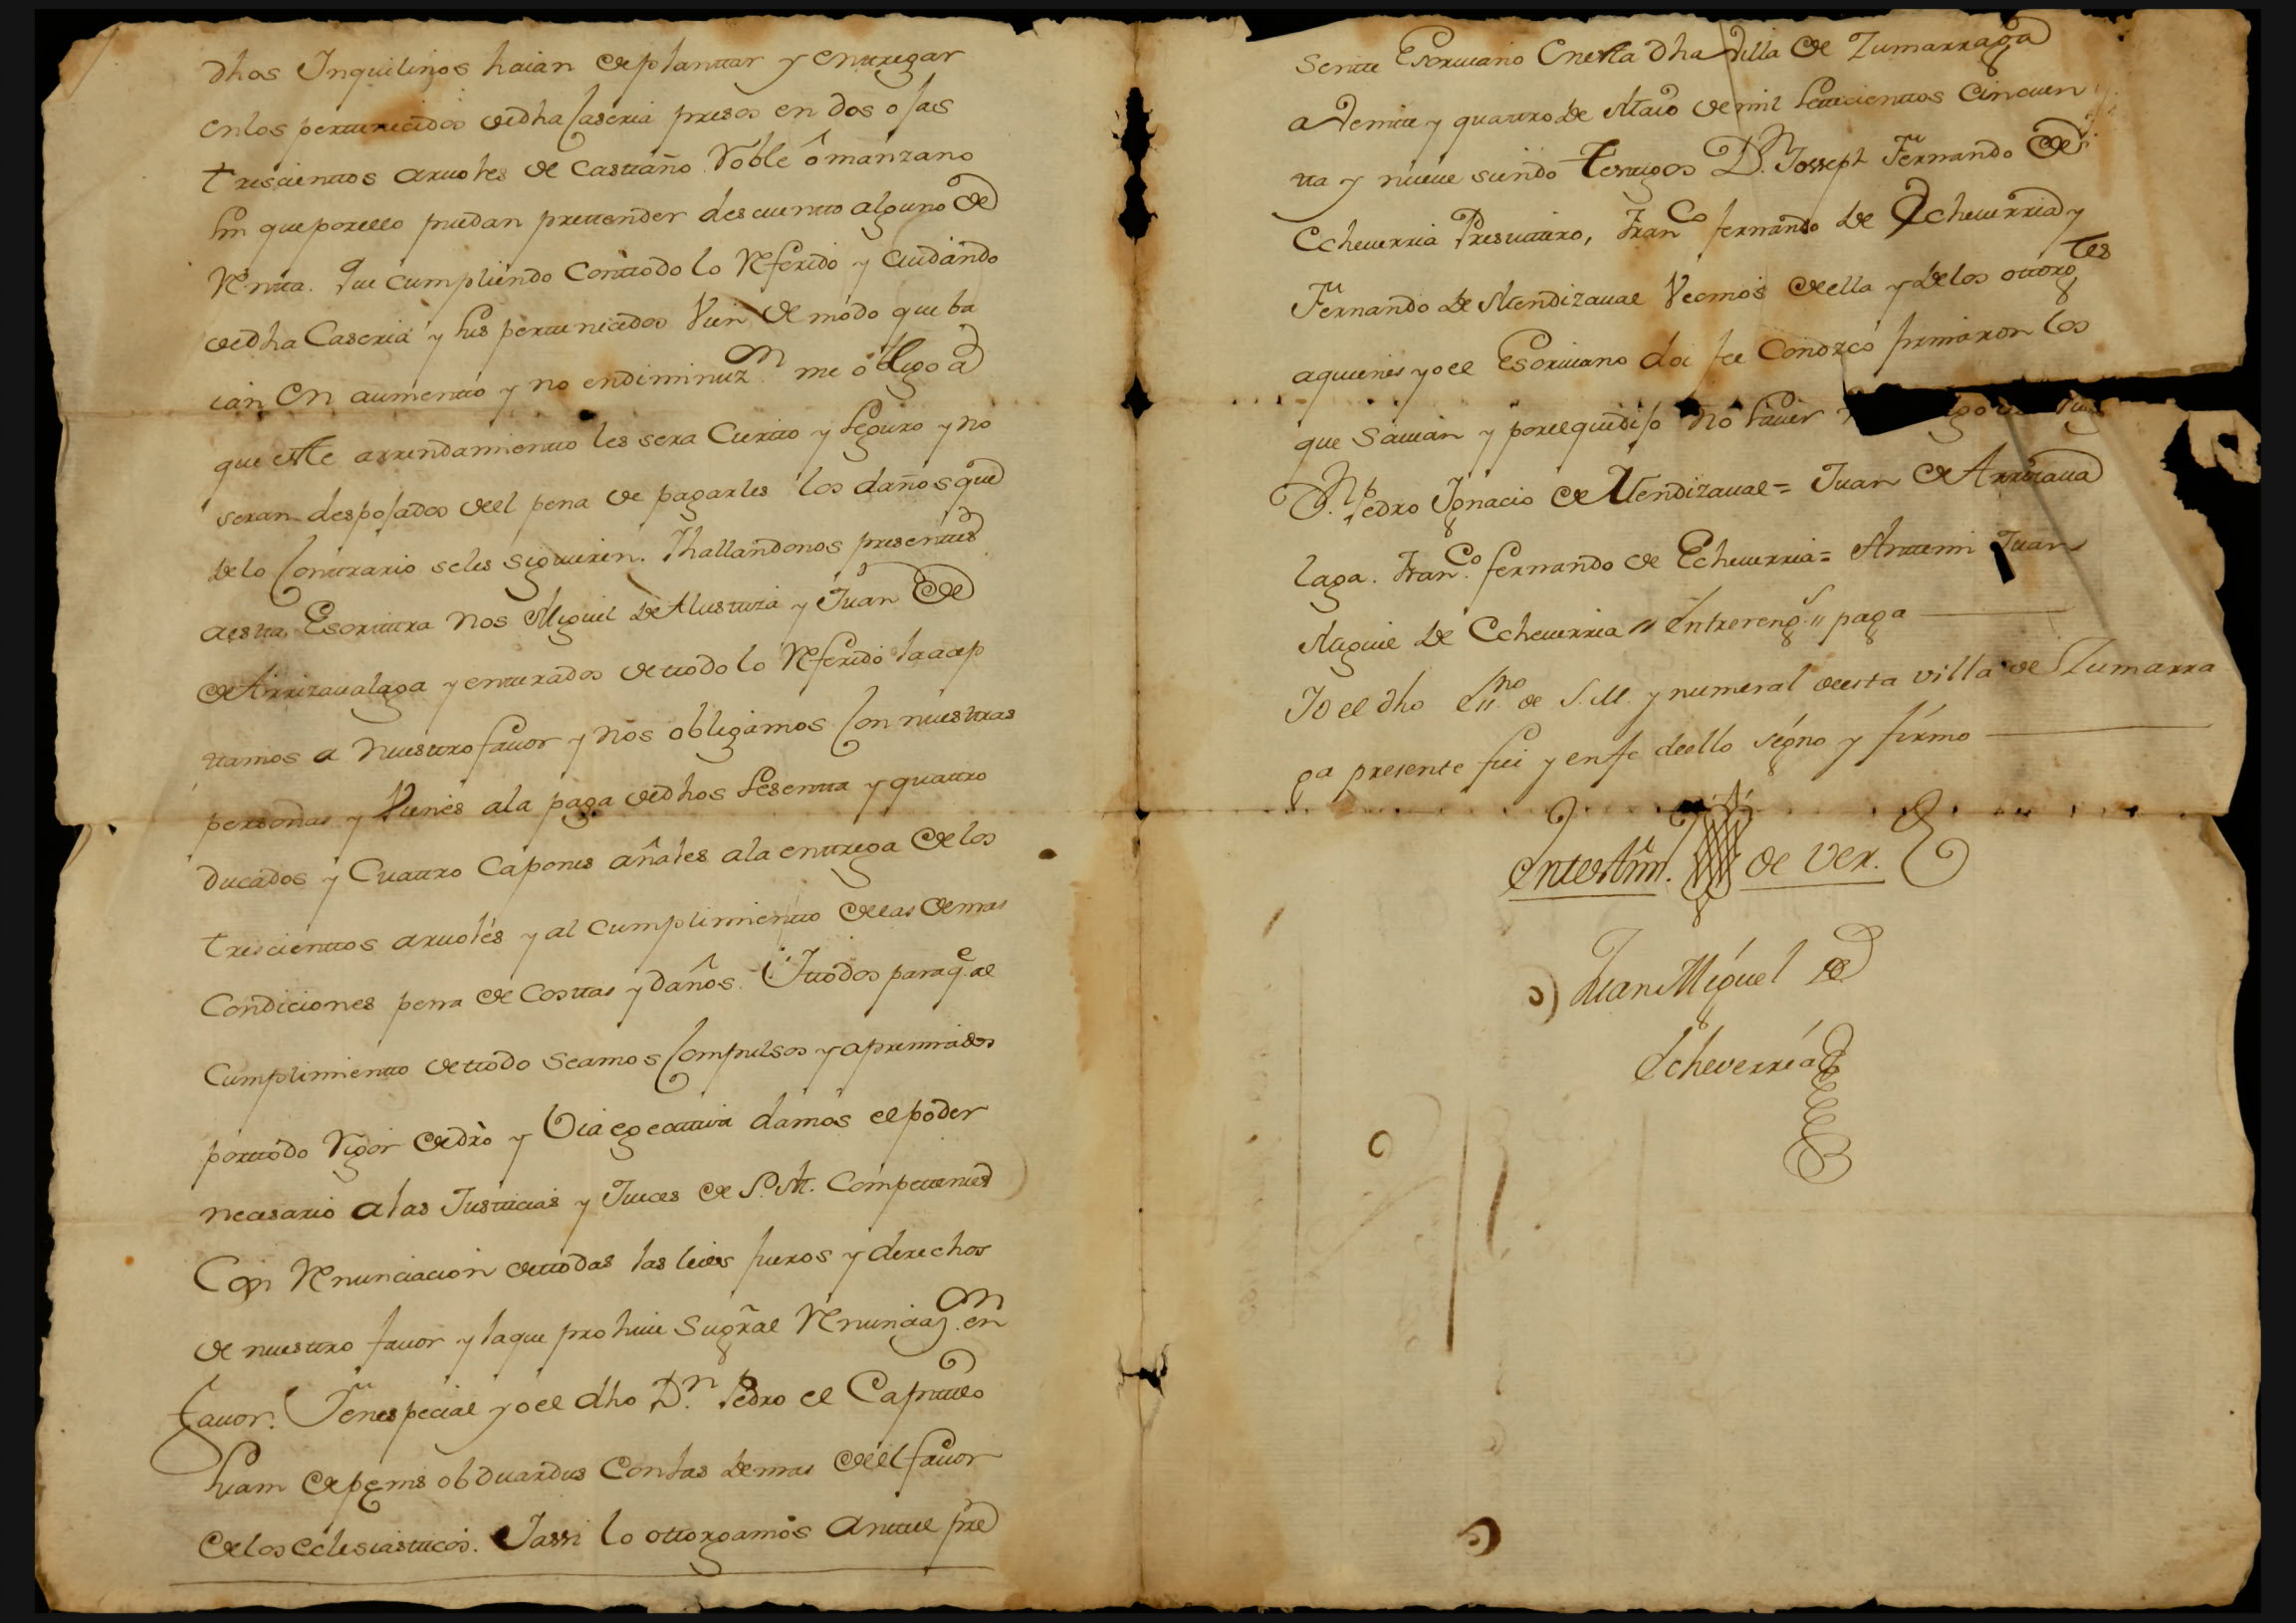 dhos Inquilinos haian de plantar y entregar
en los pertenecidos de dha Caseria presos en dos ojas
trescientos arvoles de castaño Roble ô manzano
sin que por ello puedan prettender descuentto alguno de
Rentta. Que cumpliendo con ttodo lo Referido y cuidando
de dha Caseria y sus perttenecidos vien de modo que ba
ian en aumentto y no en diminuz.on me obligo a
que este arrendamientto les sera Ciertto y seguro y no
seran desposados de el pena de pagarles los daños que
de lo Conttrario se les siguieren. Ihallandonos presenttes
a estta Escrittura nos Miguel de Alusttiza y Juan de
de Arrizavalaga y entterados de ttodo lo Referido la acep
ttamos a nuesttro favor y nos obligamos Con nuesttras
personas y Vienes a la paga de dhos sesentta y quattro
ducados y Cuattro Capones añales a la enttrega de los
trescienttos arvoles y al cumplimientto de las demas
Condiciones pena de Costtas y daños. I ttodos para q.e al
Cumplimientto de ttodo seamos Compulsos y apremiados
por ttodo Rigor de dro y Via egecuttiva damos el poder
necesario a las Justticias y Jueces de S.M. Compettenttes
Con Renunciacion de ttodas las leies fueros y derechos
de nuesttro favor y la que prohive su gral Renunciaz.on en
favor. I en especial yo el dho D.n Pedro el Capittulo
suam de penis obduardus con las demas de el favor
de los eclesiastticos. I assi lo ottorgamos antte el pre
sentte Escrivano en esta dha Villa de Zumarraga
a Veintte y quattro de Maio de mil settecienttos Cincuen
tta y nueve siendo testtigos D.n Joseph Fernando de
Echeverria Presvittero, Fran.co fernando de Echeverria y
Fernando de Mendizaval Vecinos de ella y de los ottorg.tes
a quienes yo el Escrivano doi fee Conozco firmaron los
que savian y por el que dijo no saver
D.n Pedro Ignacio de Mendizaval = Juan de Arrizava
laga. Fran.co fernando de Echeverria = Antte mi Juan
Miguel de Echeverria // Entrereng.s // paga
Io el dho ess.no de S.M. y numeral de esta villa de Zumarra
ga presente fui y en fe de ello signo y firmo
en testim. de ver.
Juan Miguel de
Echeverria